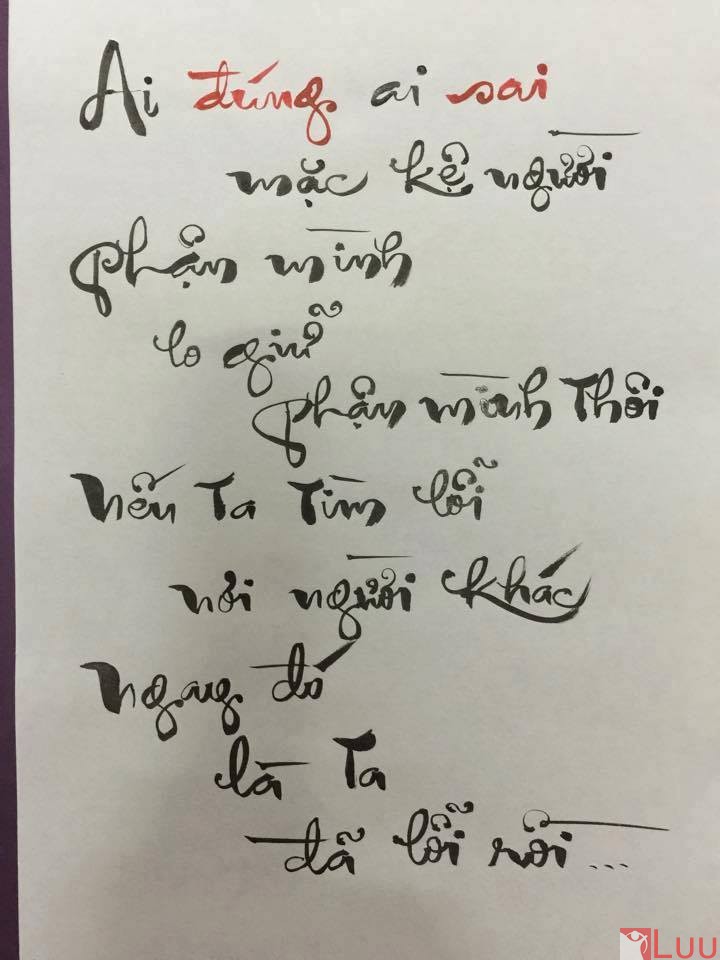 Ai đúng ai sai
mặc kệ người
Phận mình
lo giữ
phận mình Thôi
Nếu Ta Tìm lỗi
nơi người khác
Ngang đó
là Ta
đã lỗi rồi...
LUU